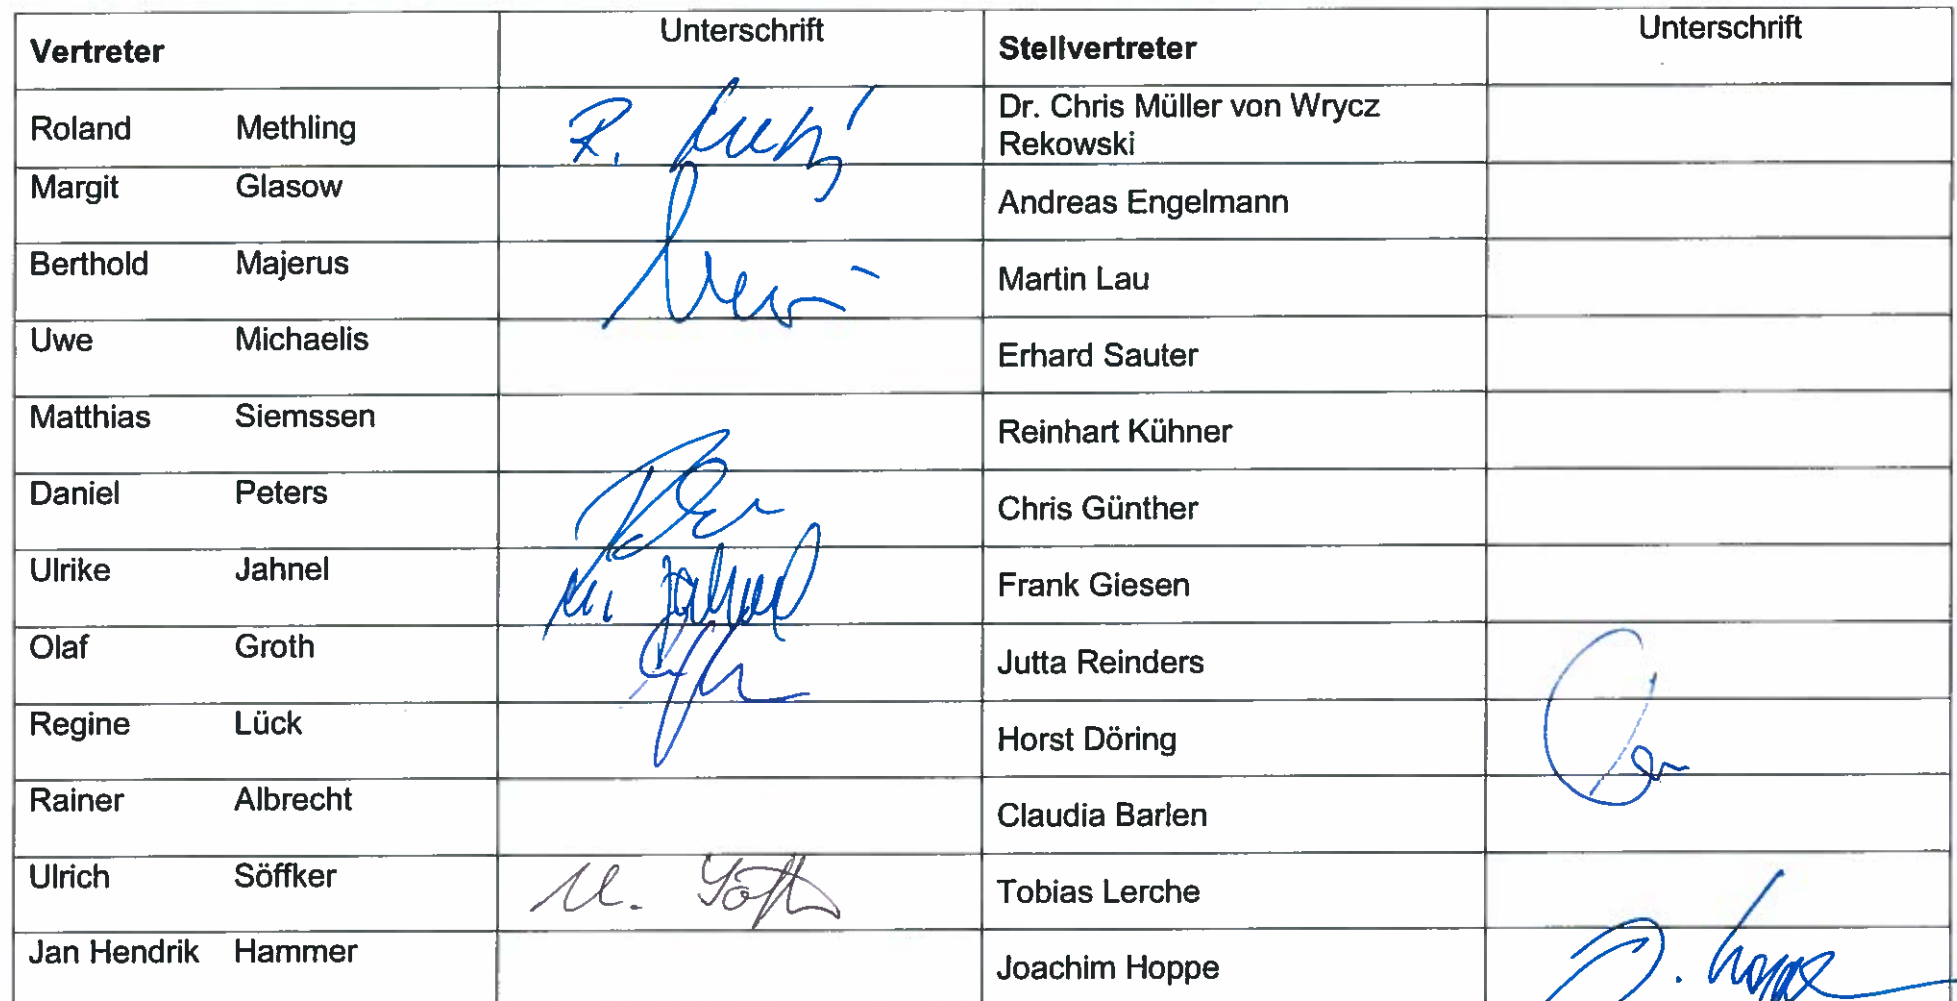 Vertreter Unterschrift Stellvertreter Unterschrift
Roland Methling R. Dr. Chris Müller von Wrycz
Rekowski
Margit Glasow Andreas Engelmann
Berthold Majerus Martin Lau
Uwe Michaelis Erhard Sauter
Matthias Siemssen Reinhart Kühner
Daniel Peters Chris Günther
Ulrike Jahnel U. Jahnel Frank Giesen
Olaf Groth Jutta Reinders
Regine Lück Horst Döring
Rainer Albrecht Claudia Barlen
Ulrich Söffker U. Tobias Lerche
Jan Hendrik Hammer Joachim Hoppe J. Hoppe